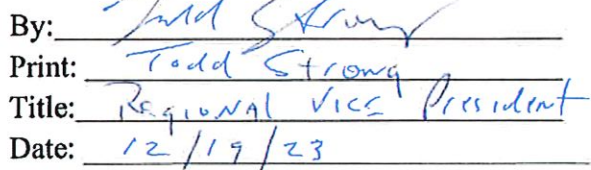 By: Todd Strong
Print: Todd Strong
Title: Regional Vice President
Date: 12/19/23